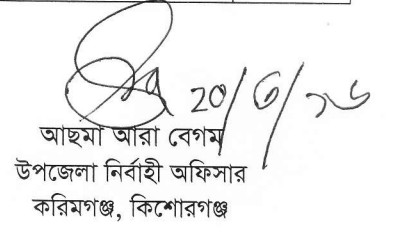 ২০/৩/১৬
আছমা আরা বেগম
উপজেলা নির্বাহী অফিসার
করিমগঞ্জ, কিশোরগঞ্জ